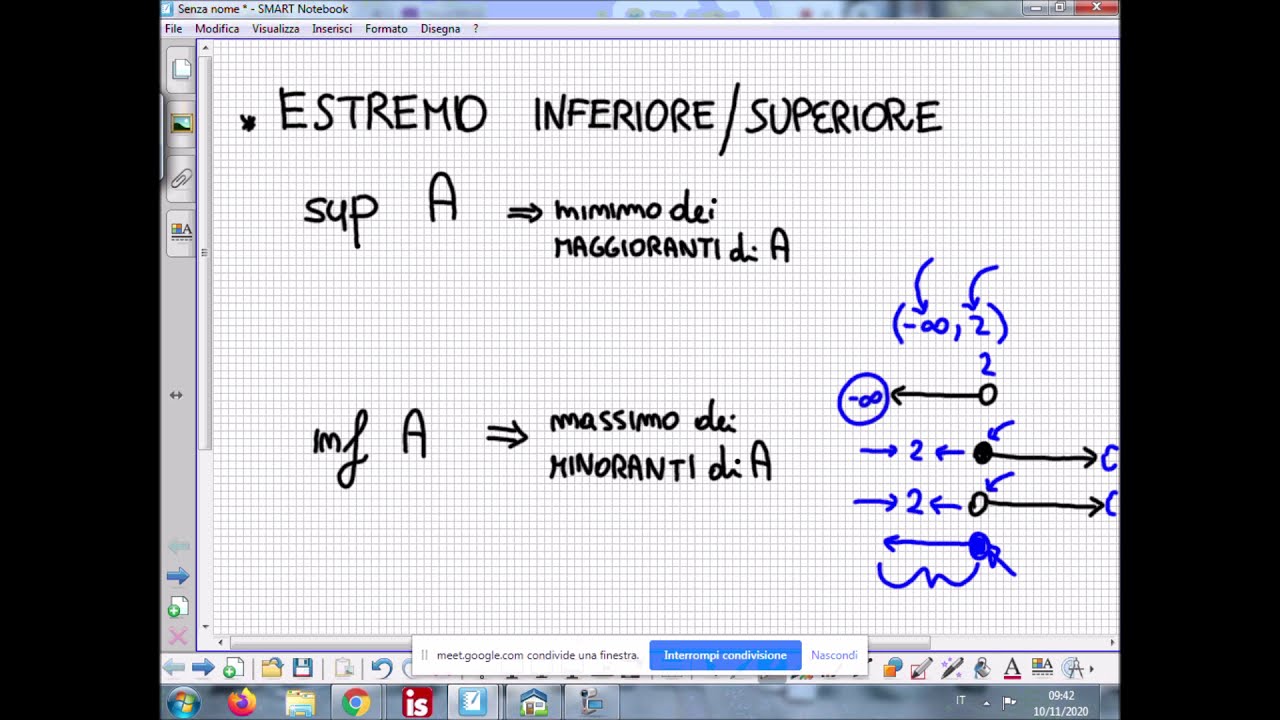 Senza nome * - SMART Notebook
File Modifica Visualizza Inserisci Formato Disegna ?
* ESTREMO INFERIORE/SUPERIORE
sup A ⇒ minimo dei
MAGGIORANTI di A
(-∞, 2)
2
-∞
inf A ⇒ massimo dei
MINORANTI di A
→ 2 ←
→ 2 ←
meet.google.com condivide una finestra. Interrompi condivisione Nascondi
IT
09:42
10/11/2020